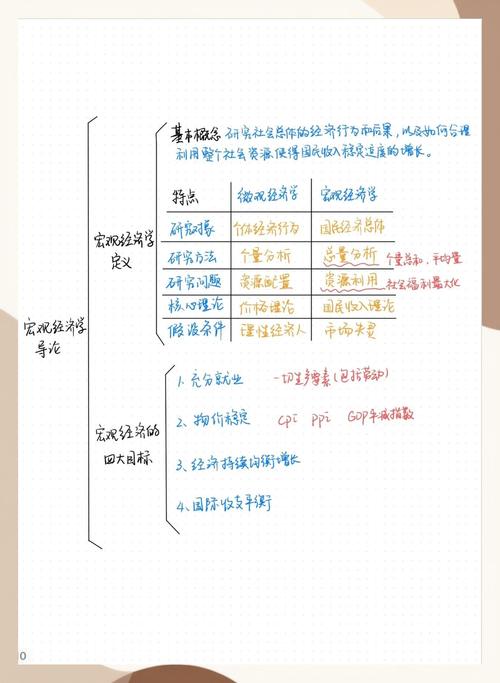 基本概念 研究社会总体的经济行为和后果，以及如何合理
利用整个社会资源，使得国民收入稳定适度的增长。
特点 微观经济学 宏观经济学
宏观经济学
定义
研究对象 个体经济行为 国民经济总体
研究方法 个量分析 总量分析 个量总和、平均量
研究问题 资源配置 资源利用 社会福利最大化
核心理论 价格理论 国民收入理论
假设条件 理性经济人 市场失灵
宏观经济学
导论
1. 充分就业 一切生产要素(包括劳动)
2、物价稳定 CPI PPI GDP平减指数
宏观经济的
四大目标
3、经济持续均衡增长
4、国际收支平衡
0